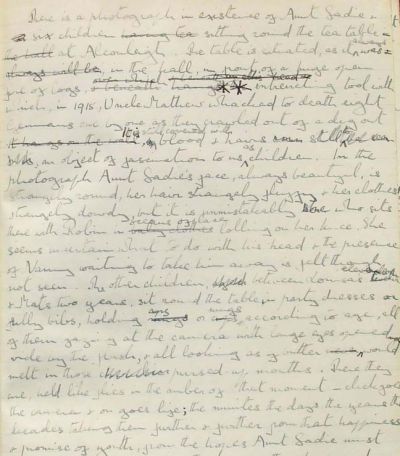 There is a photograph in existence of Aunt Sadie &
her six children having tea sitting round the tea table
the hall at Alconleigh. The table is situated, as it was &
always will be, in the hall, in front of a huge open
fire of logs, over which entrenching tool with
which, in 1915, Uncle Matthew whacked to death eight
Germans one by one as they crawled out of a dug out
It hangs on the wall, It is still covered with blood & hairs
bits, an object of fascination to us as children. In the
photograph Aunt Sadie's face, always beautiful, is
strangely round, her hair strangely fluffy & her clothes
strangely dowdy, but it is unmistakably she who sits
there with Robin in oceans of lace lolling on her knee. She
seems uncertain what to do with his head & the presence
of Nanny waiting to take him away is felt though
not seen. The other children, between Louisa's eleven
& Matt's two years, sit round the table in party dresses or
frilly bibs, holding cups or mugs according to age, all
of them gazing at the camera with large eyes opened
wide by the flash, & all looking as if butter would
melt in those pursed-up mouths. There they
are, held like flies in the amber of that moment – click goes
the camera & on goes life; the minutes the days the years the
decades taking them further & further from that happiness
& promise of youth, from the hopes Aunt Sadie must